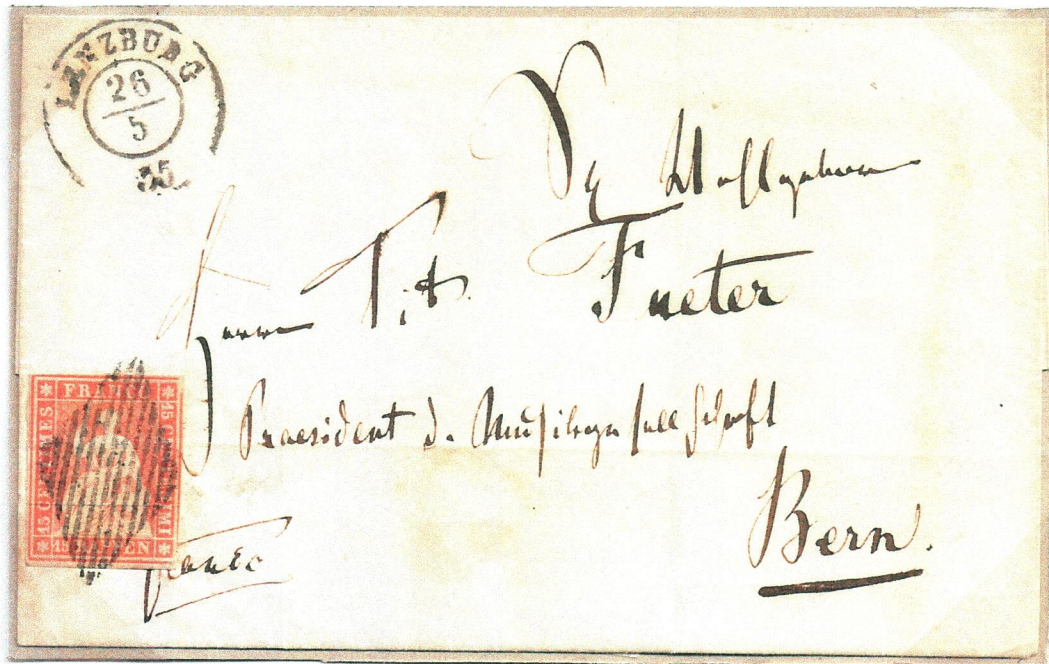 LENZBURG
26
5
55
Sr Wohlgeboren
Herrn
Fueter
Praesident d. Musikgesellschaft
Bern.
franco
FRANCO
15 CENTIMES
15 CENTESIMI
15 RAPPEN